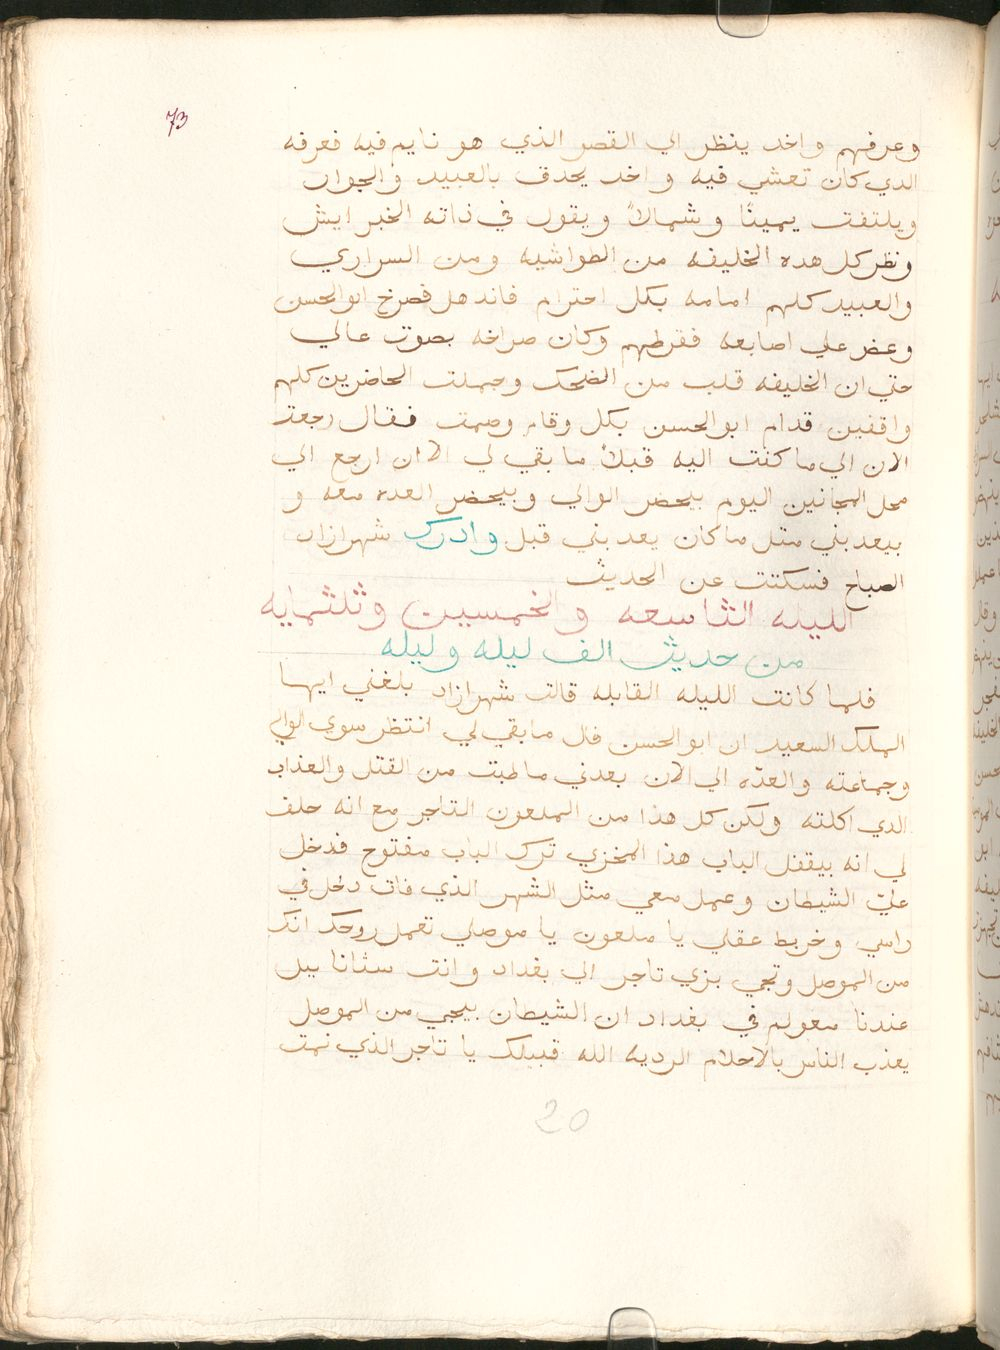 73
وعرفهم واخد ينظر الي القصر الذي هو نايم فيه فعرفه
الدي كان تعشي فيه واخد يحدق بالعبيد والجوار
ويلتفت يمينًا وشمالاً ويقول في ذاته الخبر ايش
ونظر كل هده الخليفه من الطواشيه ومن السراري
والعبيد كلهم امامه بكل احترام فاندهل فصرخ ابو الحسن
وعض علي اصابعه فقرطهم وكان صراخه بصوت عالي
حتي ان الخليفه قلب من الضحك وجملت الحاضرين كلهم
واقفين قدام ابو الحسن بكل وقار وصمت فقال رجعت
الان الي ما كنت اليه قبلاً ما بقي لي الان ارجع الي
محل المجانين اليوم بيحضر الوالي وبيحضر العده معه و
بيعدبني متل ما كان يعدبني قبل وادرك شهرازاد
الصباح فسكتت عن الحديث
الليله التاسعه والخمسين وثلثمايه
من حديث الف ليله وليله
فلما كانت الليله القابله قالت شهرازاد بلغني ايها
الملك السعيد ان ابو الحسن قال ما بقي لي انتظر سوي الوالي
وجماعته والعدّه الي الان بعدني ما طبت من القتل والعذاب
الدي اكلته ولكن كل هذا من الملعون التاجر مع انه حلف
لي انه بيقفل الباب هذا المخزي ترك الباب مفتوح فدخل
عليّ الشيطان وعمل معي متل الشهر الذي فات دخل في
راسي وخربط عقلي يا ملعون يا موصلي تعمل روحك انك
من الموصل وتجي بزي تاجر الي بغداد وانت
عندنا معولم في بغداد ان الشيطان بيجي من الموصل
يعذب الناس بالاحلام الرديه الله قبيلك يا تاجر الذي نمت
20